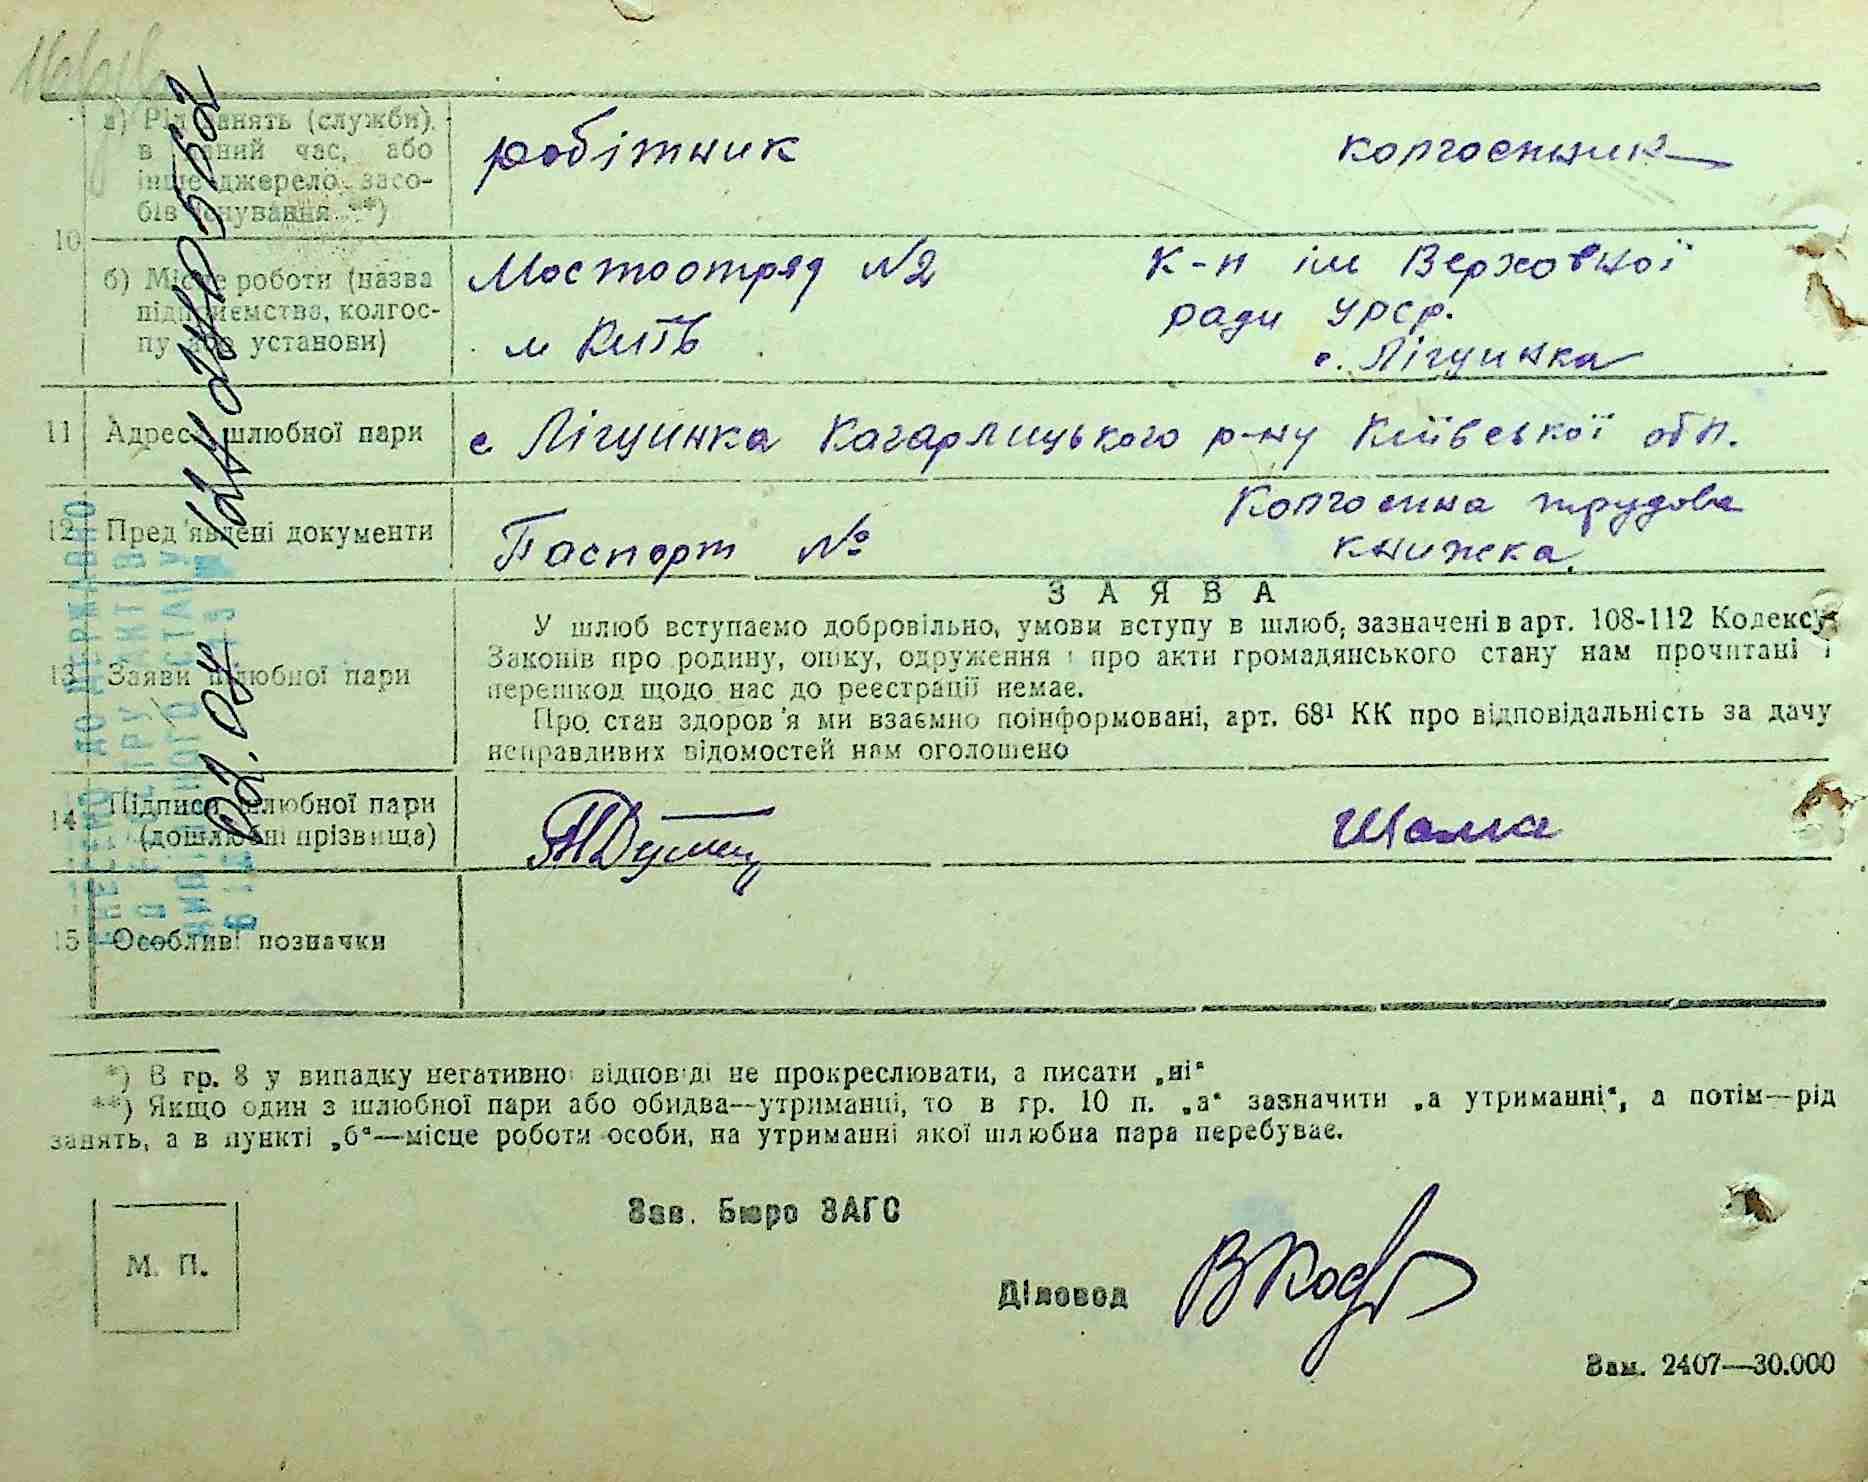 а) Рід занять (служби) в даний час, або інше джерело засобів існування **)
робітник
колгоспник
10
б) Місце роботи (назва підприємства, колгоспу або установи)
Мостоотряд №2
м Київ
к-п ім Верховної
ради УРСР.
с. Лігущинка
11 Адреса шлюбної пари
с Лігущинка Кагарлицького р-ну Київської обл.
12 Пред'явлені документи
Паспорт №
Колгоспна трудова
книжка.
13 Заяви шлюбної пари
ЗАЯВА
У шлюб вступаємо добровільно, умови вступу в шлюб, зазначені в арт. 108-112 Кодексу
Законів про родину, опіку, одруження і про акти громадянського стану нам прочитані і
перешкод щодо нас до реєстрації немає.
Про стан здоров'я ми взаємно поінформовані, арт. 68¹ КК про відповідальність за дачу
неправдивих відомостей нам оголошено
14 Підписи шлюбної пари
(дошлюбні прізвища)
15 Особливі позначки
*) В гр. 8 у випадку негативної відповіді не прокреслювати, а писати „ні“
**) Якщо один з шлюбної пари або обидва—утриманці, то в гр. 10 п. „а“ зазначити „а утриманні“, а потім—рід
занять, а в пункті „б“—місце роботи особи, на утриманні якої шлюбна пара перебуває.
Зав. Бюро ЗАГС
М. П.
Діловод
Зам. 2407—30.000